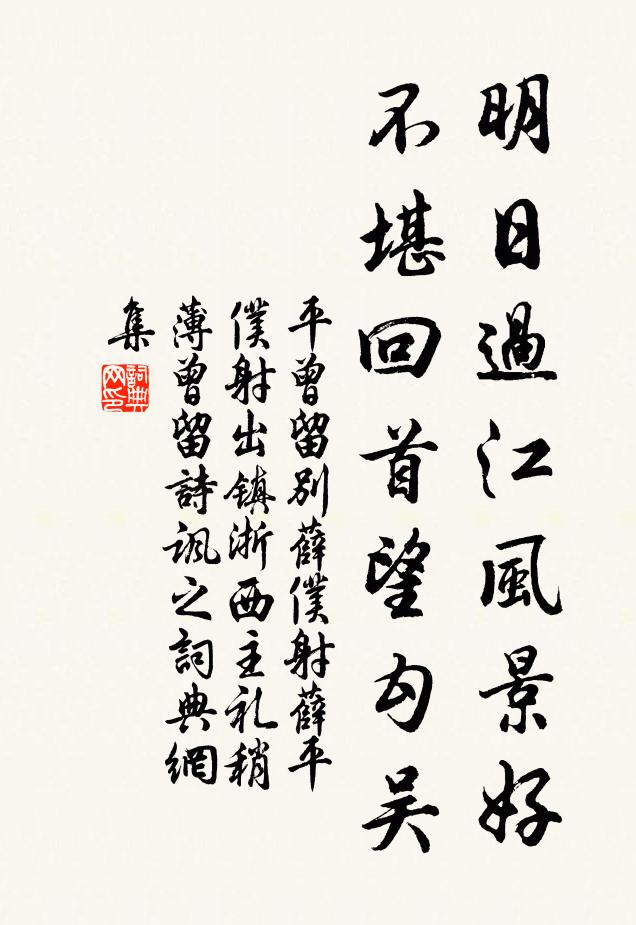 明日過江風景好
不堪回首望勾吴
平曾留別薛僕射薛平
僕射出镇浙西主礼稍
薄曾留詩諷之詞典網
集
詞典网印